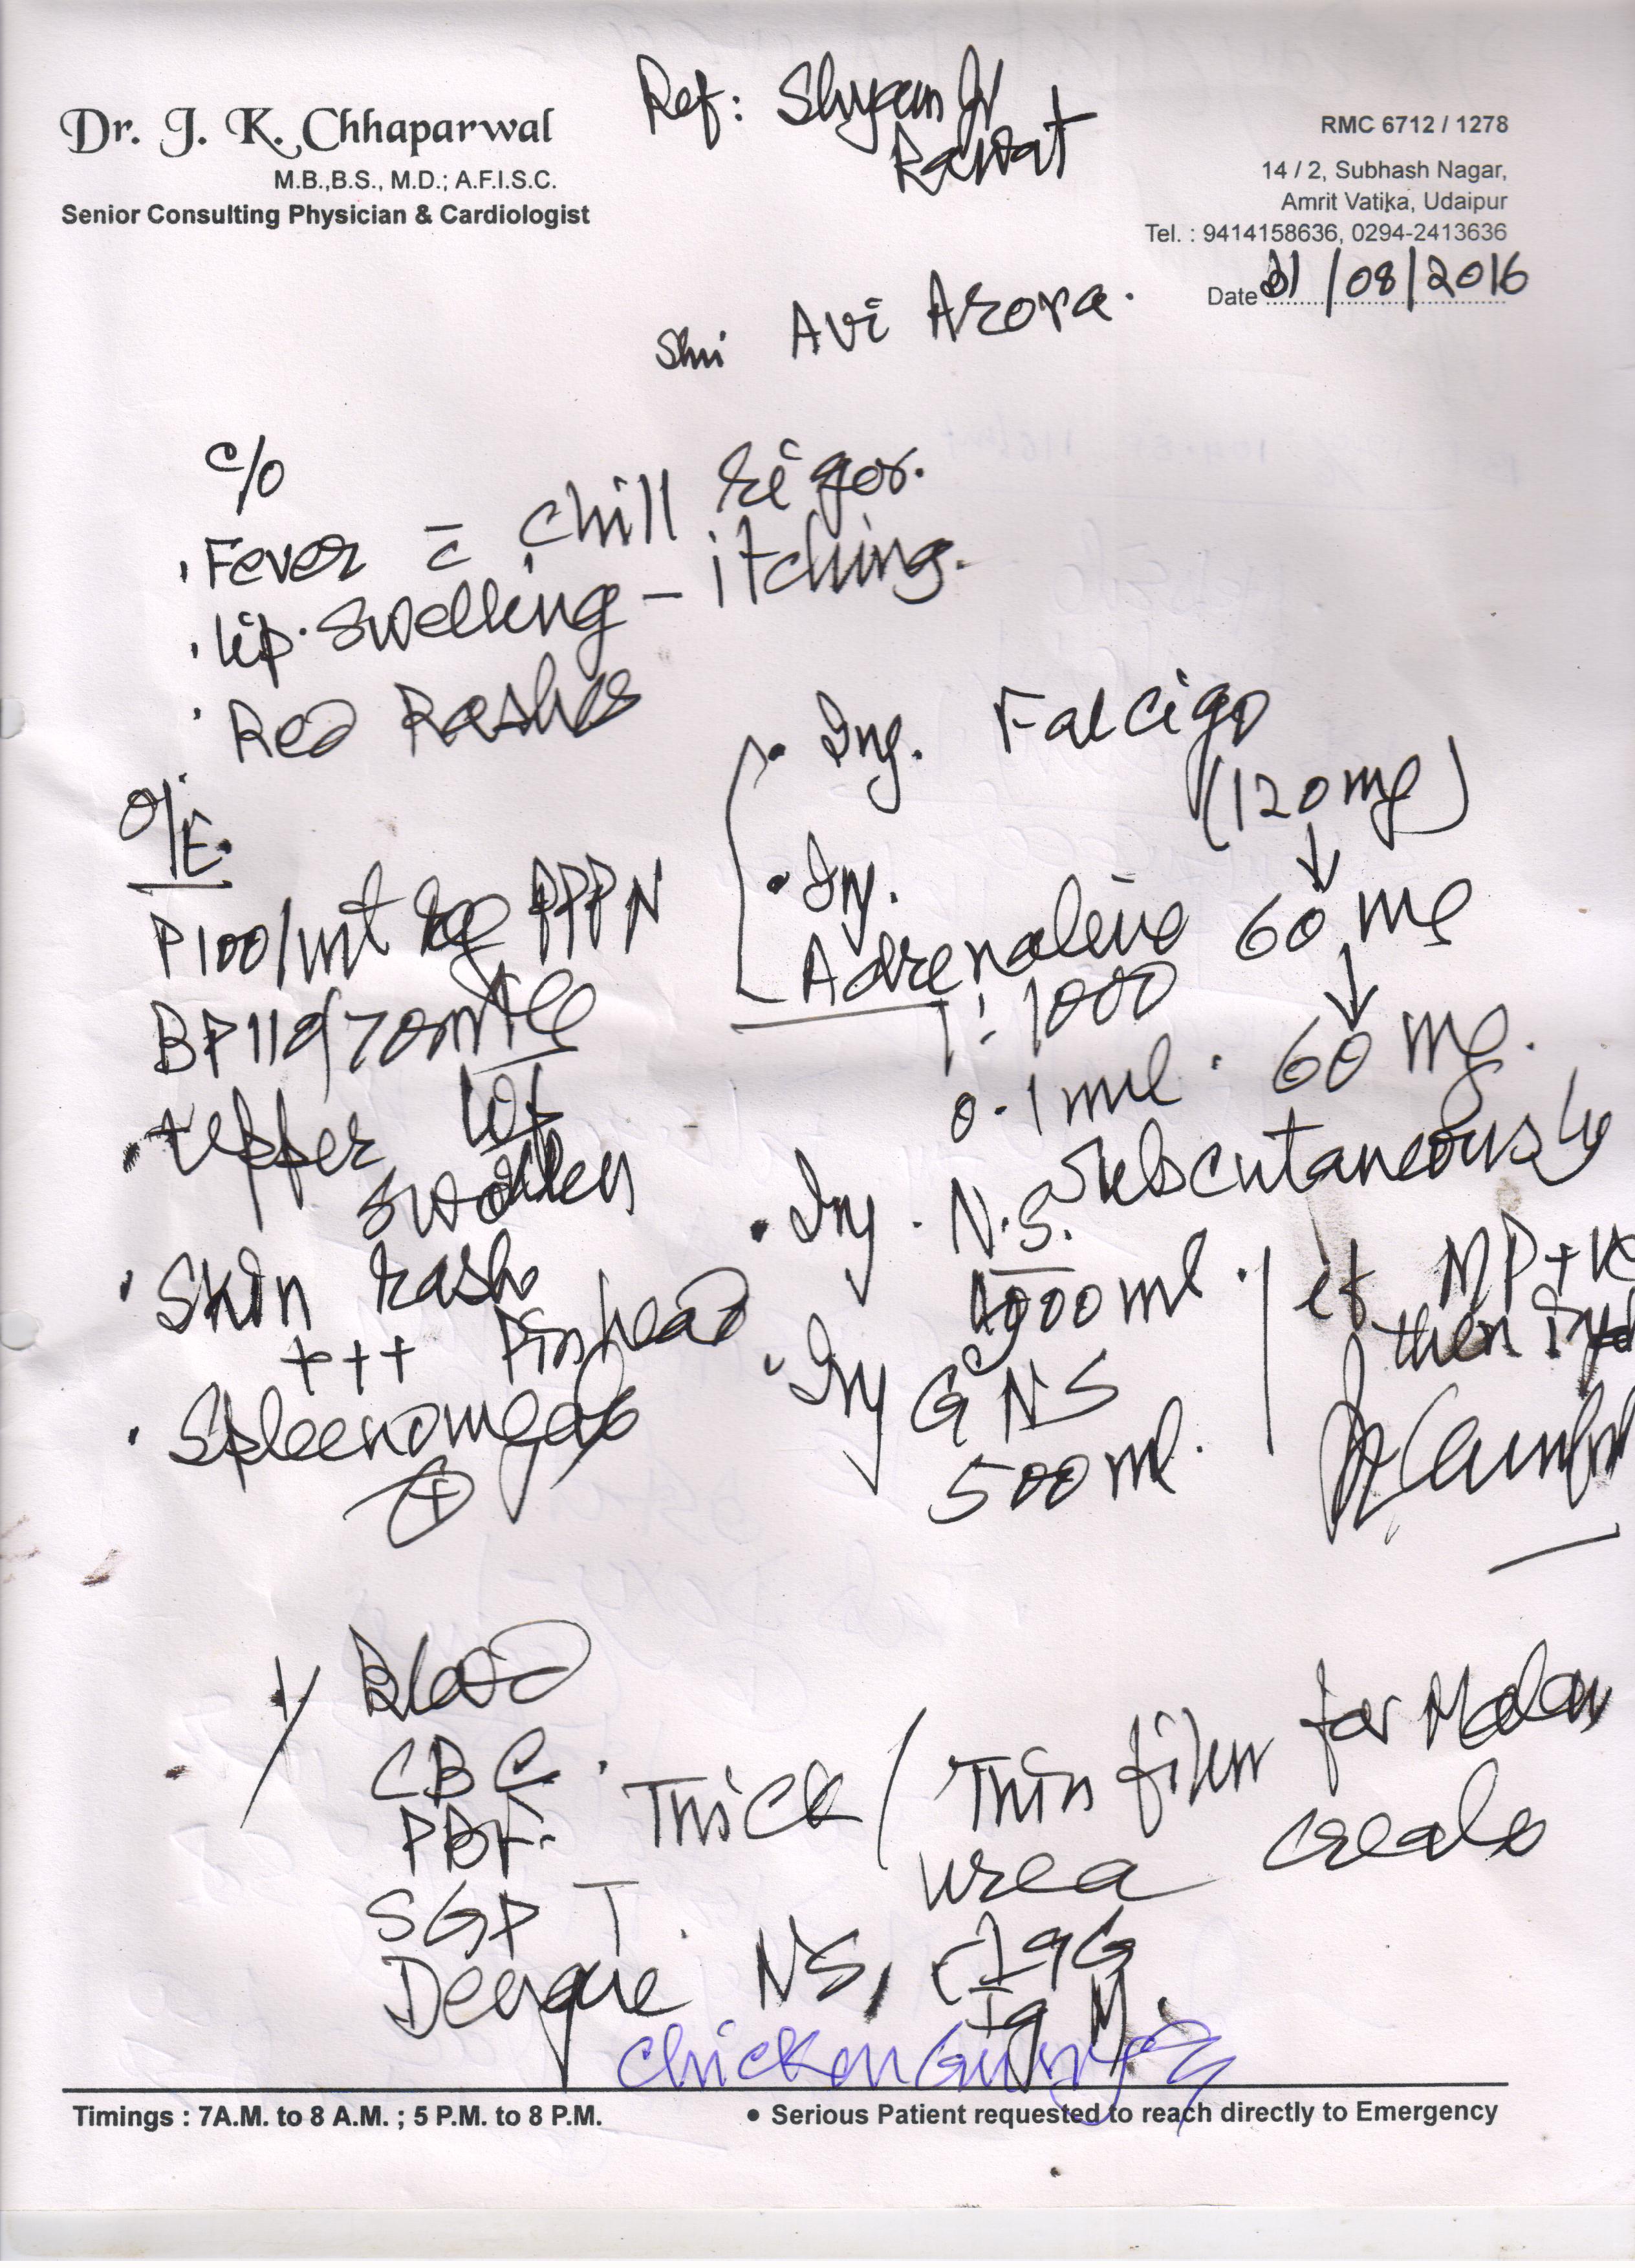 Ref: Shyam Ji
Rawat
Dr. J. K. Chhaparwal
M.B.,B.S., M.D.; A.F.I.S.C.
Senior Consulting Physician & Cardiologist
RMC 6712 / 1278
14 / 2, Subhash Nagar,
Amrit Vatika, Udaipur
Tel. : 9414158636, 0294-2413636
Date /08/2016
Shri Avi Arora.
C/O
Fever c̄ chill rigor.
lip swelling - itching.
Red Rashes
O/E.
P 100/mt PPPN
BP 110/70mmHg
upper lip
swollen
Skin rash
+++ Pinhead
Spleenomegaly
+
Inj. Falcigo
(120mg)
↓
Inj.
Adrenaline 60 mg
1:1000 ↓
0.1ml. 60 mg.
Subcutaneously
Inj. N.S.
1000 ml.
Inj GNS
500 ml.
if MP+
then
1/ Blood
CBC.
PBF. Thick / Thin film for
SGPT. urea
Dengue NS1 IgG
IgM.
Chickengunya
Timings : 7A.M. to 8 A.M. ; 5 P.M. to 8 P.M.
• Serious Patient requested to reach directly to Emergency